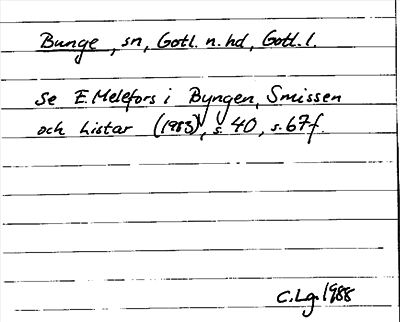 Bunge, sn, Gotl. n. hd, Gotl. l.
Se E. Melefors i Byngen, Smissen
och Listar (1983), s. 40, s. 67f.
C. Lg. 1988